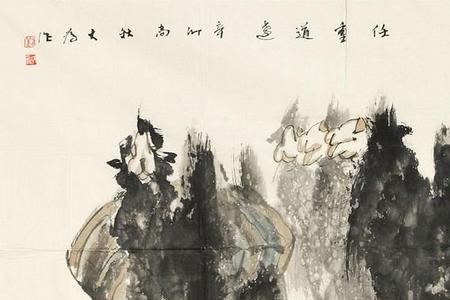 任重道遠辛卯高秋大為作